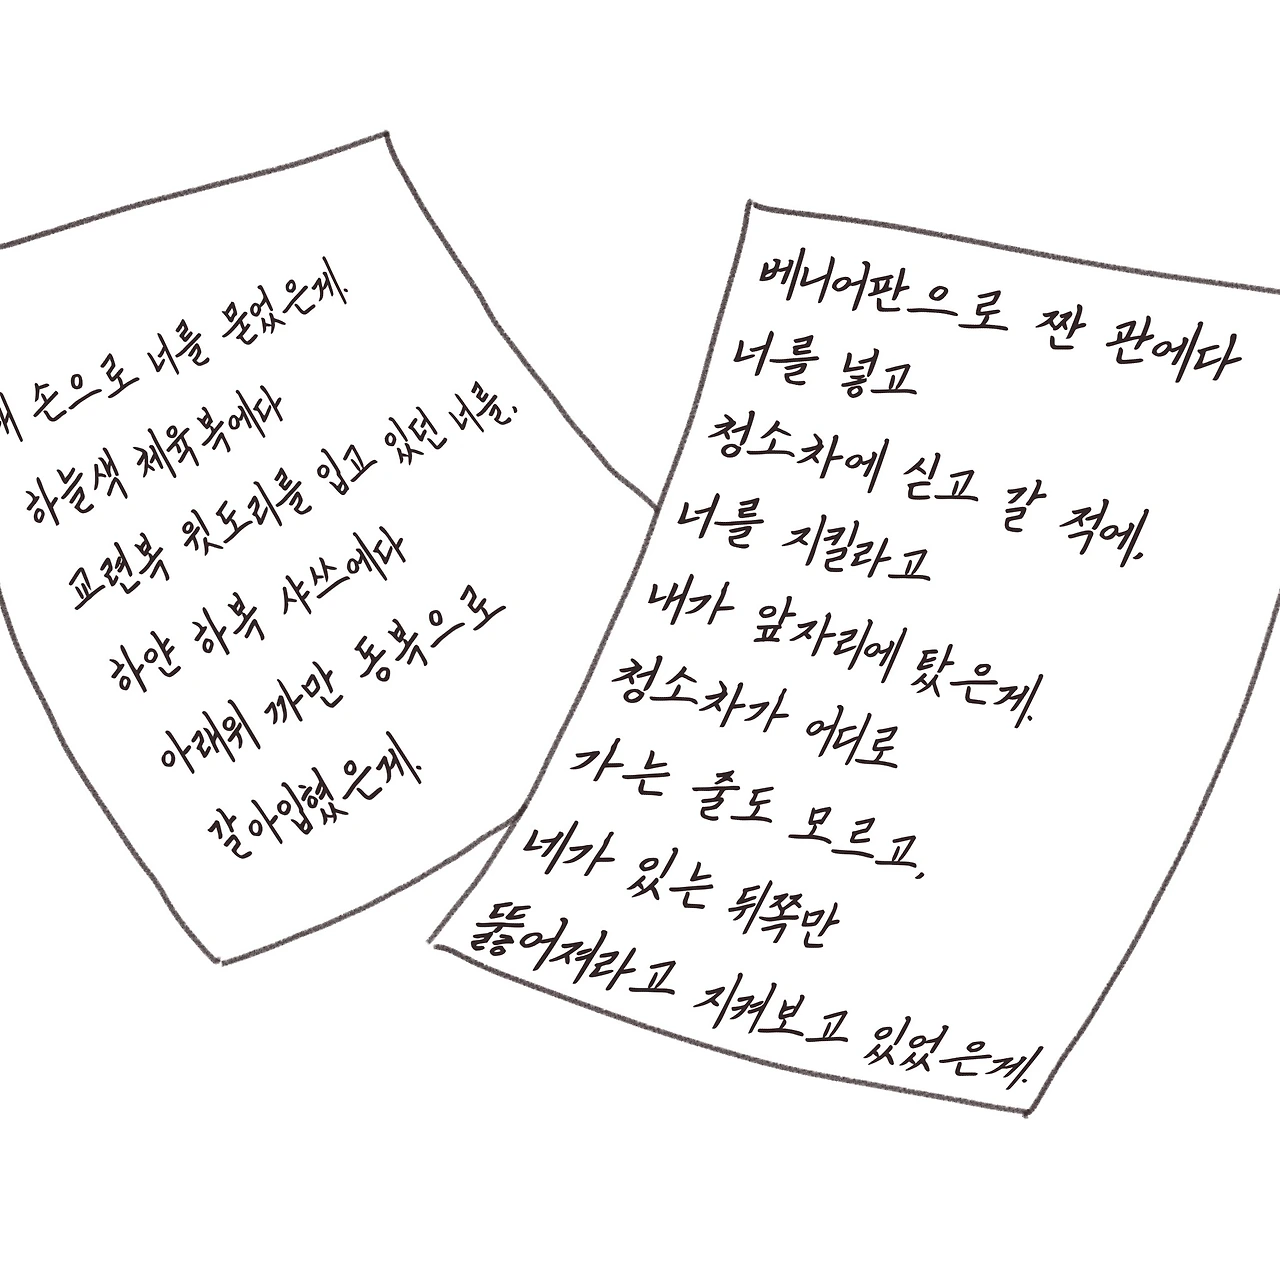 손으로 너를 묻었은게.
하늘색 체육복에다
교련복 윗도리를 입고 있던 너를,
하얀 하복 샤쓰에다
아래위 까만 동복으로
갈아입혔은게.
베니어판으로 짠 관에다
너를 넣고
청소차에 싣고 갈 적에,
너를 지킬라고
내가 앞자리에 탔은게.
청소차가 어디로
가는 줄도 모르고,
네가 있는 뒤쪽만
뚫어져라고 지켜보고 있었은게.